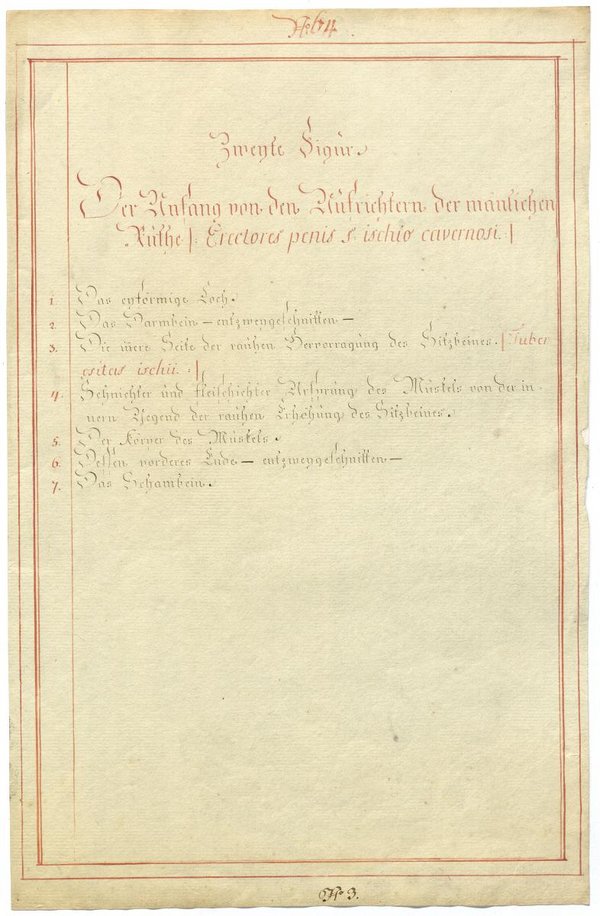 No. 64.
Zweyte Figur.
Der Anfang von den Aufrichtern der mänlichen
Ruthe |: Erectores penis s. ischio cavernosi. |
1. Das eyförmige Loch.
2. Das Darmbein — entzweygeschnitten —
3. Die inere Seite der rauhen Hervorragung des Sitzbeines. | Tuber
ositas ischii. :|
4. Sehnichter und fleischichter Ursprung des Muskels von der in-
nern Gegend der rauhen Erhöhung des Sitzbeines.
5. Der Körper des Muskels.
6. Dessen vorderes Ende — entzweygeschnitten —
7. Das Schambein.
No 3.